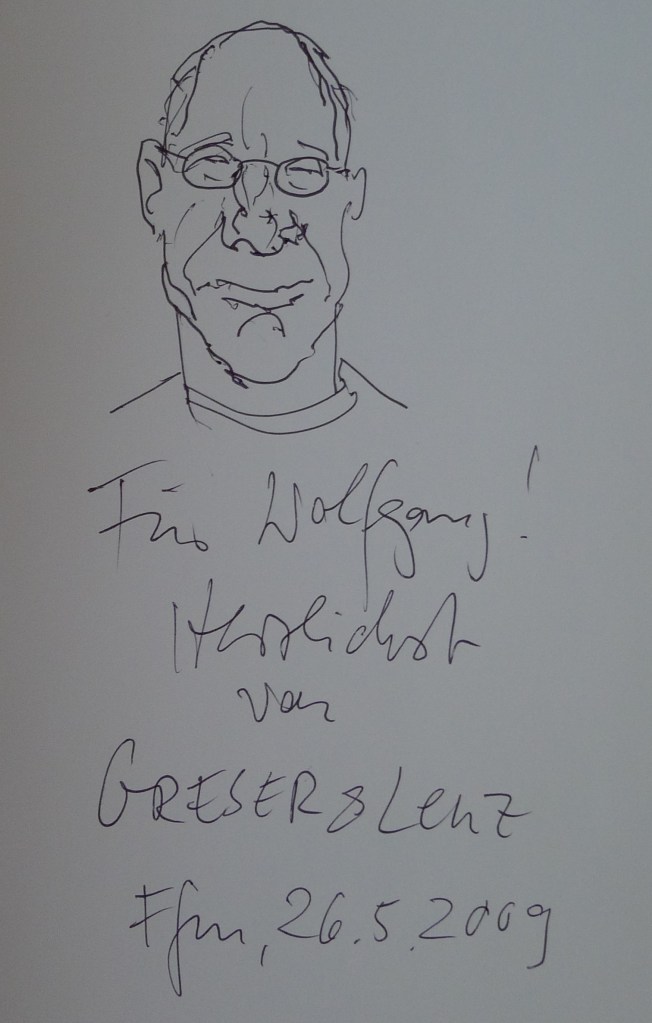 Für Wolfgang!
Herzlichst
von
GRESER & Lenz
Ffm, 26.5.2009